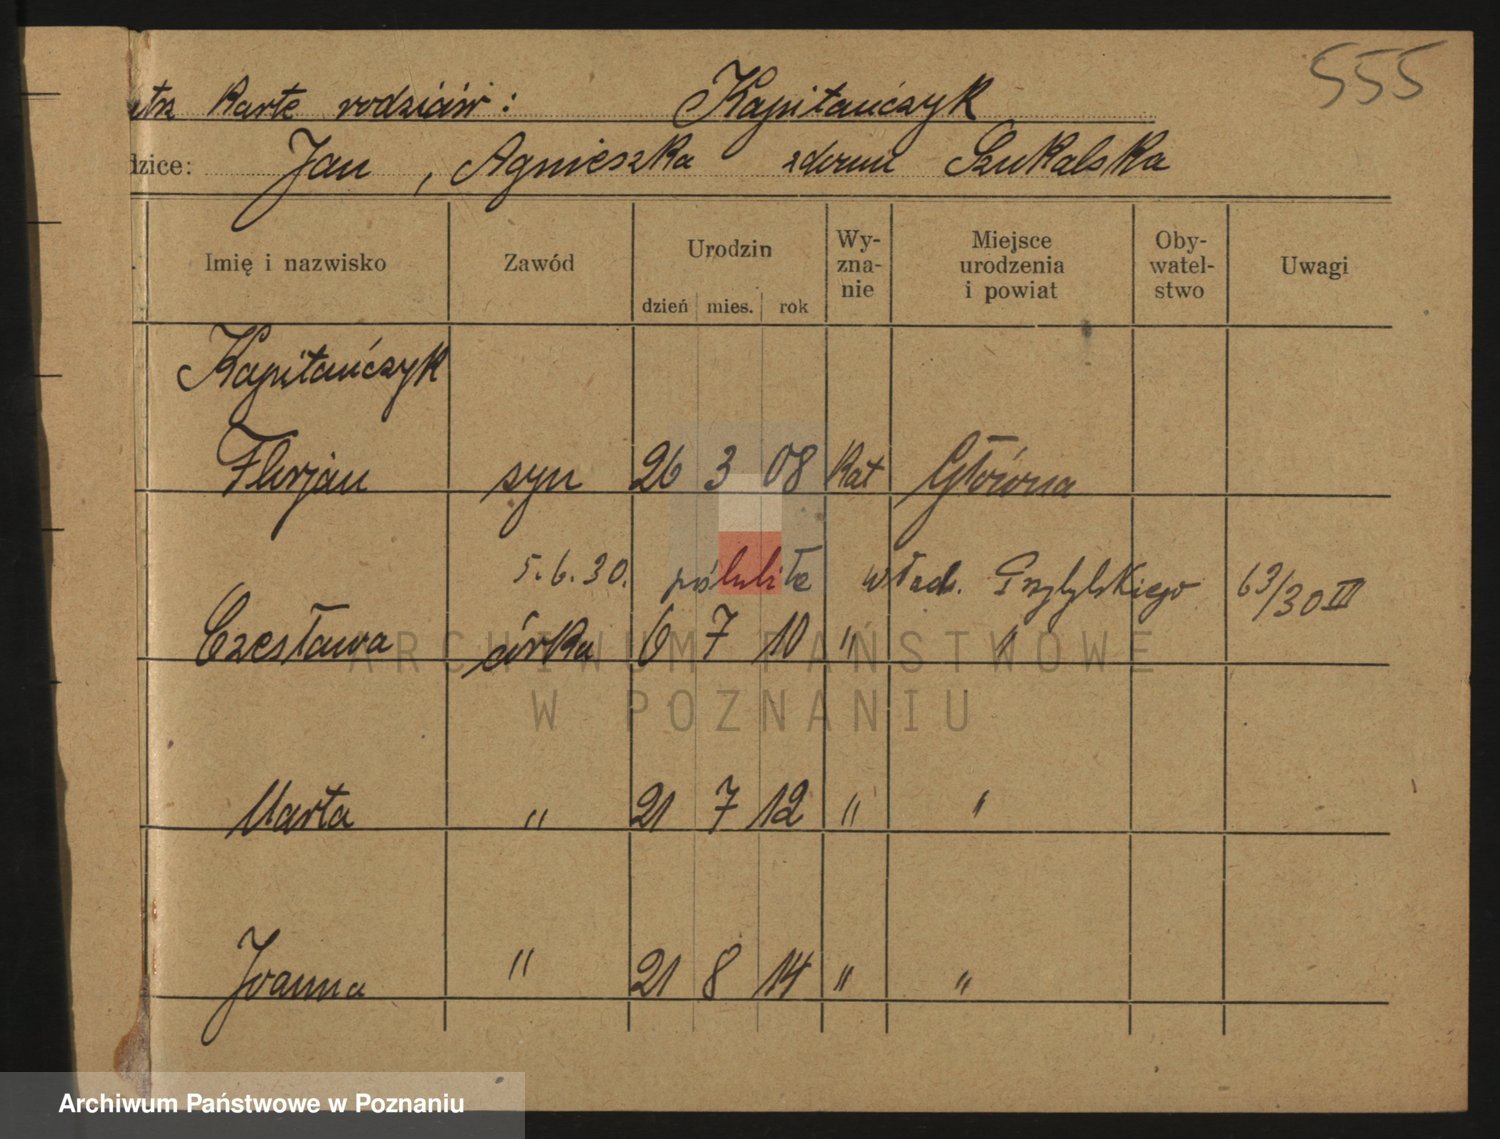 555
karte rodziców: Kapitańczyk
dzice: Jan, Agnieszka zdomu Szukalska
Imię i nazwisko Zawód Urodzin dzień mies. rok Wy-zna-nie Miejsce urodzenia i powiat Oby-watel-stwo Uwagi
Kapitańczyk
Florjan syn 26 3 08 Kat Główna
5.6.30. poślubiła Wład. Przybylskiego 63/30 III
Czesława córka 6 7 10 " "
ARCHIWUM PAŃSTWOWE
W POZNANIU
Marta " 21 7 12 " "
Joanna " 21 8 14 " "
Archiwum Państwowe w Poznaniu